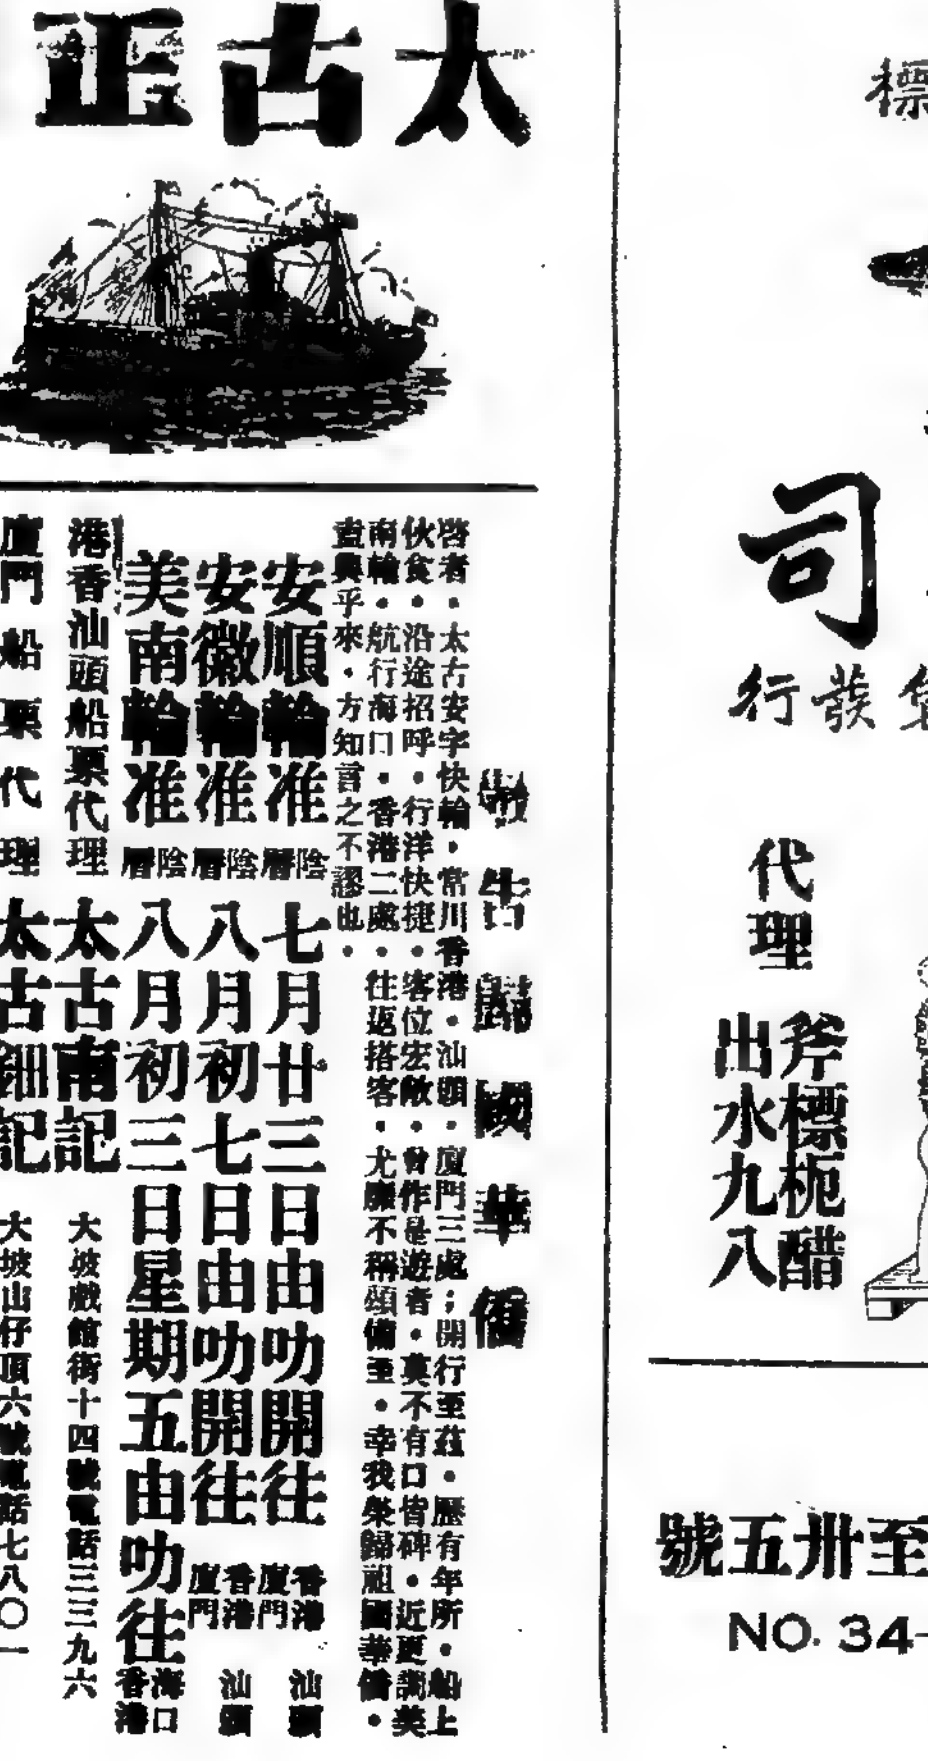 太古正
敝告歸國華僑
啓者．太古安字快輪．常川香港．汕頭．廈門三處；開行至茲．歷有年所．船上
伙食．沿途招呼．行洋快捷．客位宏敞．曾作是遊者．莫不有口皆碑．近更調美
南輪．航行海口．香港二處．往返搭客．尤靡不稱頌備至．幸我榮歸祖國華僑．
盍興乎來．方知言之不謬也．
安順輪准陰曆七月廿三日由叻開往香港汕頭廈門
安徽輪准陰曆八月初七日由叻開往香港汕頭廈門
美南輪准陰曆八月初三日星期五由叻往海口香港
港香汕頭船票代理太古南記大坡戲館街十四號電話三三九六
廈門船票代理太古細記大坡山仔頂六號電話七八〇一
標
司
發行
代理
斧標枙醋
出水九八
至卅五號
NO. 34-